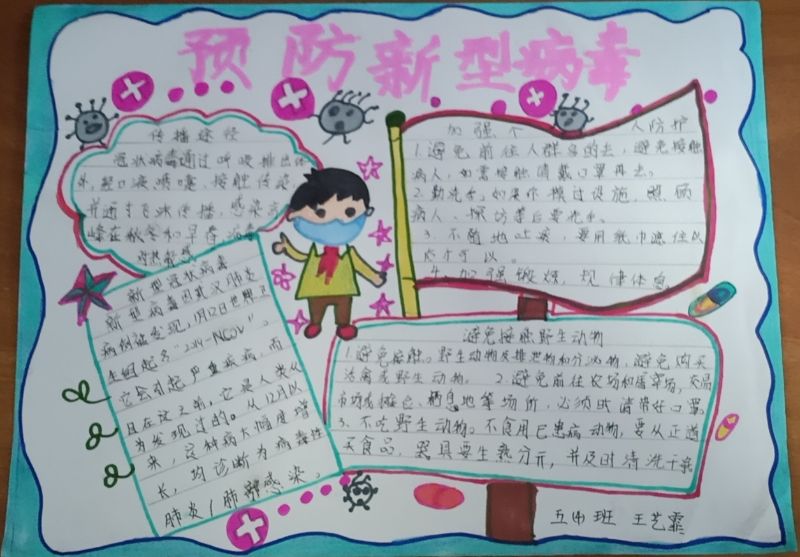 预防新型病毒
传播途径
冠状病毒通过呼吸排出体
外,经口液喷嚏、接触传染
并通过飞沫传播,感染高
峰在秋冬和早春,病毒
对热敏感
加强个人防护
1.避免前往人群多的去,避免接触
病人,如需接触请戴口罩再去。
2.勤洗手,如果你摸过设施,照顾
病人、探访等后要洗手。
3.不随地吐痰,要用纸巾遮住以
4.加强锻炼,规律休息
新型冠状病毒
新型病毒因武汉肺炎
病例被发现,1月12日世界卫
生组起名"2019-NCOV"。
它会引起严重疾病,而
且在这之前,它是人类从
为发现过的。从12月以
来,这种病大幅度增
长,均诊断为病毒性
肺炎/肺部感染。
避免接触野生动物
1.避免接触。野生动物及排泄物和分泌物,避免购买
活禽或野生动物。 2.避免前往农场和屠宰场,交易
市场或摊仑、栖息地等场所,必须时请带好口罩。
3.不吃野生动物。不食用已患病动物,要从正道
买食品,器具要生熟分开,并及时清洗干乾
五(4)班 王艺霏